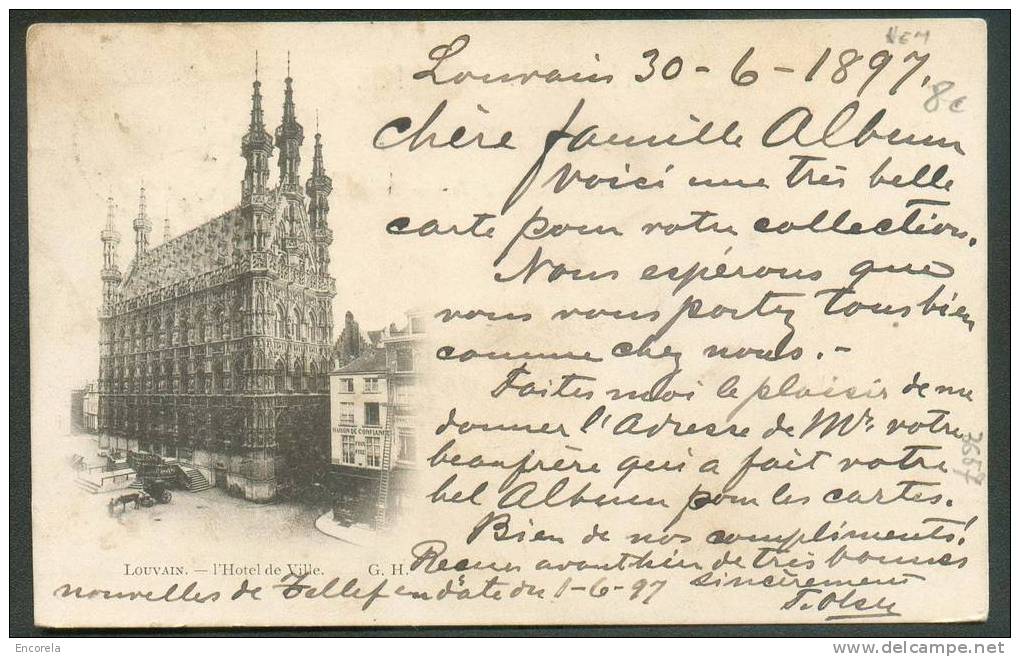 NEM
8c
Louvain 30-6-1897.
Chère famille Album
Voici une très belle
carte pour votre collection.
Nous espérons que
vous vous portez tous bien
comme chez nous.-
Faites moi le plaisir de me
donner l'Adresse de Mr votre
beaufrère qui a fait votre
bel Album pour les cartes.
Bien de nos compliments!
Recues avanthier de très bonnes
nouvelles de en date du 1-6-97
sincèrement
MAISON DE CONFIANCE
LOUVAIN. — l'Hotel de Ville. G. H.
7657
Encorela
www.delcampe.net